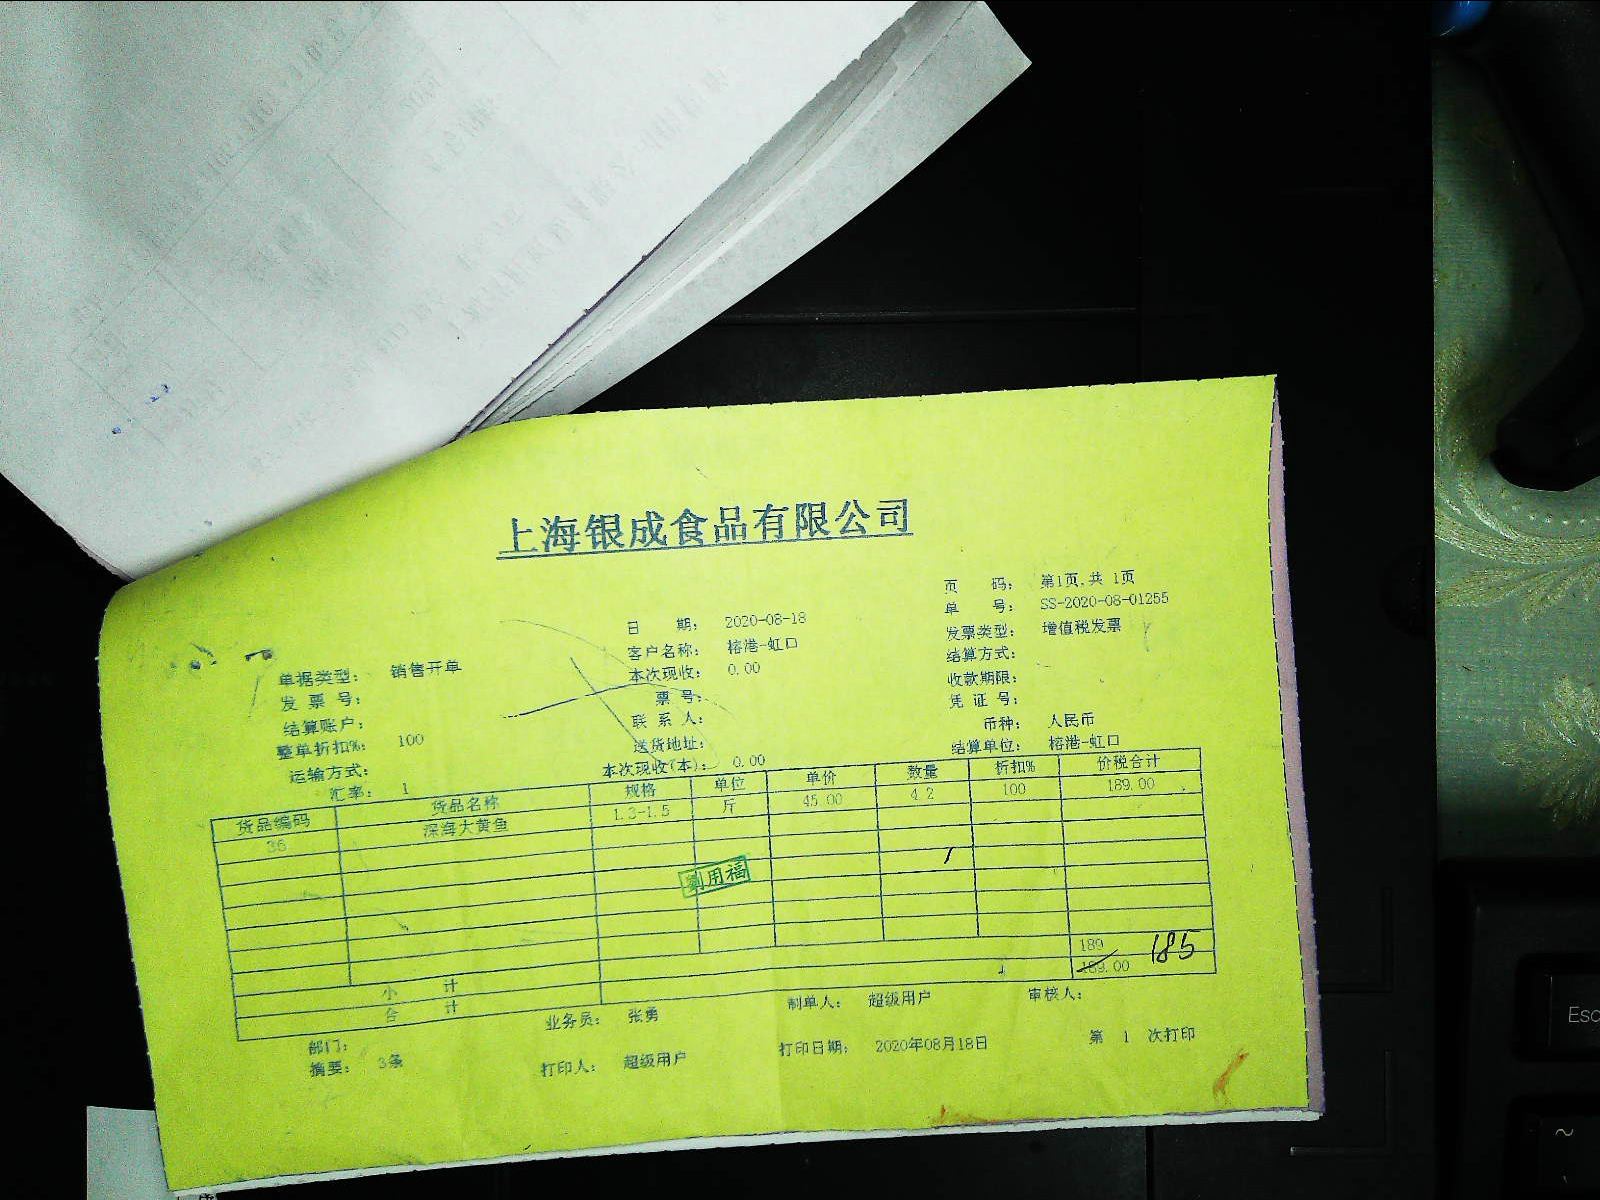 上海银成食品有限公司
页 码： 第1页,共 1页
日 期： 2020-08-18 单 号： SS-2020-08-01255
单据类型： 销售开单 客户名称： 榕港-虹口 发票类型： 增值税发票
发 票 号： 本次现收： 0.00 结算方式：
结算账户： 票 号： 收款期限：
整单折扣%： 100 联 系 人： 凭 证 号：
运输方式： 送货地址： 币种： 人民币
汇率： 1 本次现收(本)： 0.00 结算单位： 榕港-虹口
货品编码 货品名称 规格 单位 单价 数量 折扣% 价税合计
36 深海大黄鱼 1.3-1.5 斤 45.00 4.2 100 189.00
劉用福
小 计 189
合 计 189.00 185
部门： 业务员： 张勇 制单人： 超级用户 审核人：
摘要： 3条 打印人： 超级用户 打印日期： 2020年08月18日 第 1 次打印
Esc
~